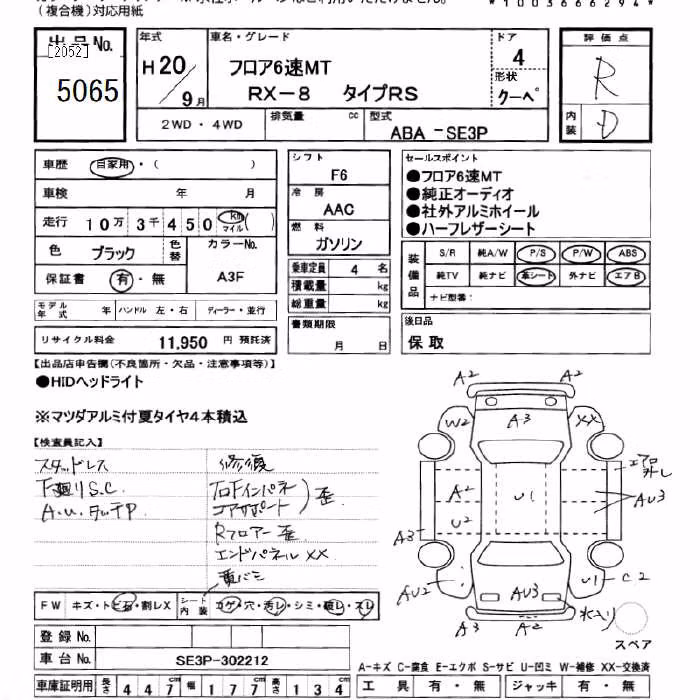 (複合機)対応用紙
*1003666294*
出品No.
[2052]
5065
年式
H20/9月
車名・グレード
フロア6速MT
RX-8 タイプRS
ドア
4
形状
クーペ
評価点
R
内装
D
2WD・4WD
排気量 cc
型式
ABA-SE3P
車歴 自家用・( )
車検 年 月
走行 10万3千450 km マイル ( )
色 ブラック 色替
カラーNo.
A3F
保証書 有・無
モデル年式 年 ハンドル 左・右 ディーラー・並行
リサイクル料金 11,950 円 預託済
シフト
F6
冷房
AAC
燃料
ガソリン
乗車定員 4 名
積載量 kg
総重量 kg
書類期限
月 日
セールスポイント
●フロア6速MT
●純正オーディオ
●社外アルミホイール
●ハーフレザーシート
装備品
S/R 純A/W P/S P/W ABS
純TV 純ナビ 革シート 外ナビ エアB
ナビ型番:
後日品
保取
【出品店申告欄(不良箇所・欠品・注意事項等)】
●HIDヘッドライト
※マツダアルミ付夏タイヤ4本積込
【検査員記入】
スタッドレス
下廻りS.C.
修復
コアサポート
歪
Rフロアー歪
エンドパネルXX
FW キズ・トビ石・割レX
シート内装 コゲ・穴・汚レ・シミ・破レ・スレ
登録No.
車台No. SE3P-302212
車庫証明用 長さ 447cm 幅 177cm 高さ 134cm
A2
A2
W2
A3
XX
エアロ外し
A2
U1
AU3
U2
A3
AU2
AU3
U1
C2
水入り
A2
スペア
A-キズ C-腐食 E-エクボ S-サビ U-凹ミ W-補修 XX-交換済
工具 有・無 ジャッキ 有・無